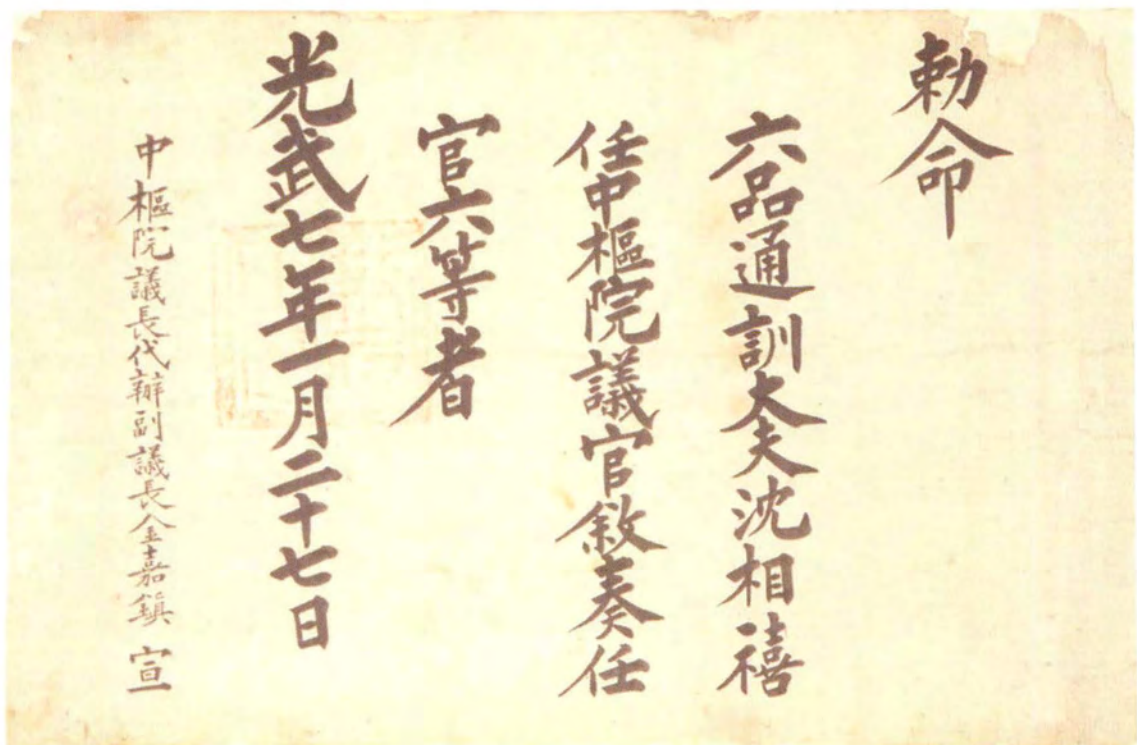 勅命
六品通訓大夫沈相禧
任中樞院議官敘奏任
官六等者
光武七年一月二十七日
中樞院議長代辦副議長金嘉鎮 宣